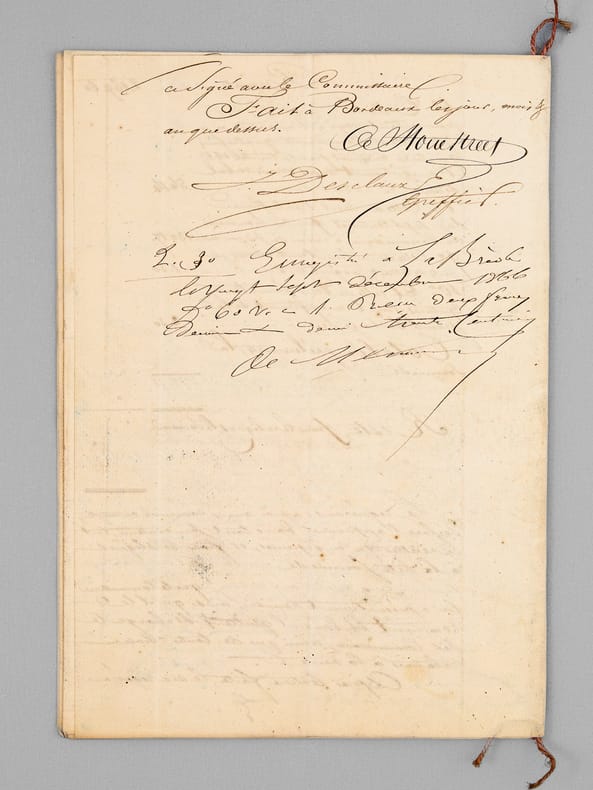 a signé avec le Commissaire
Fait à Bordeaux les jour, mois &
an que dessus.
J. Desclaux
greffier.
2.30 Enregistré à La Brède
le vingt sept décembre 1866
fo 60 Vo c 1. Reçu deux francs
Décime et demi trente Centimes
De